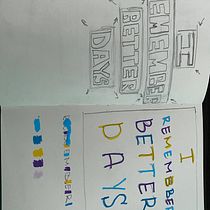 I
REMEMBER
BETTER
DAYS
I
REMEMBER
BETTER
DAYS